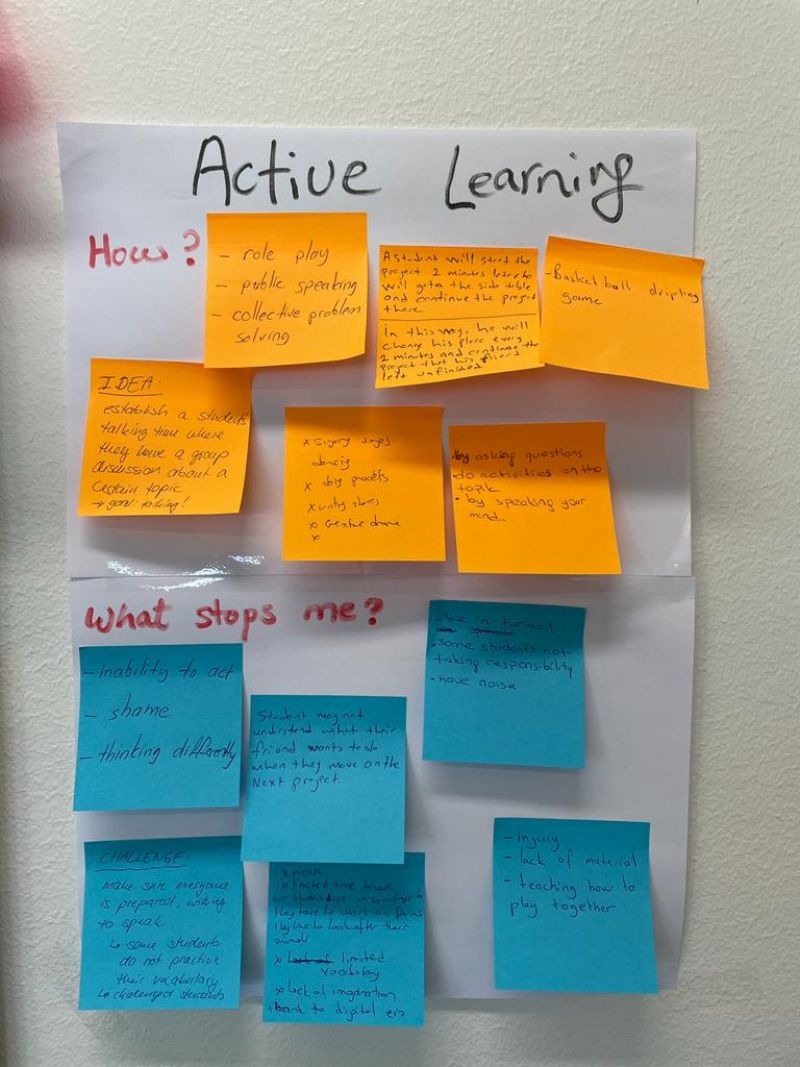 Active Learning
How?
- role play
- public speaking
- collective problem
solving
A student will start the
project 2 minutes later he
will goto the side table
and continue the project
there
In this way, he will
change his place every
2 minutes and continue the
project that his
left unfinished
- Basketball dripling
game
IDEA:
establish a students
talking time where
they have a group
discussion about a
certain topic
→ goal: talking!
x songs
x
x
x Creative drama
x
• by asking questions
do activities on the
topik
• by speaking your
mind.
What stops me?
- be in turmoil
• some students not
taking responsibility
• have noise
- Inability to act
- shame
- thinking differently
Student may not
understend what their
friend wants to do
when they move on the
Next project.
- Injury
- lack of material
- teaching how to
play together
CHALLENGE:
make sure everyone
is prepared, willing
to speak
↳ some students
do not practice
their vocabulary
↳ challenged students
x noise
x limited time
they have to work on farms
They have to look after their
animals
x limited
vocabulary
x lack of imagination
to digital era